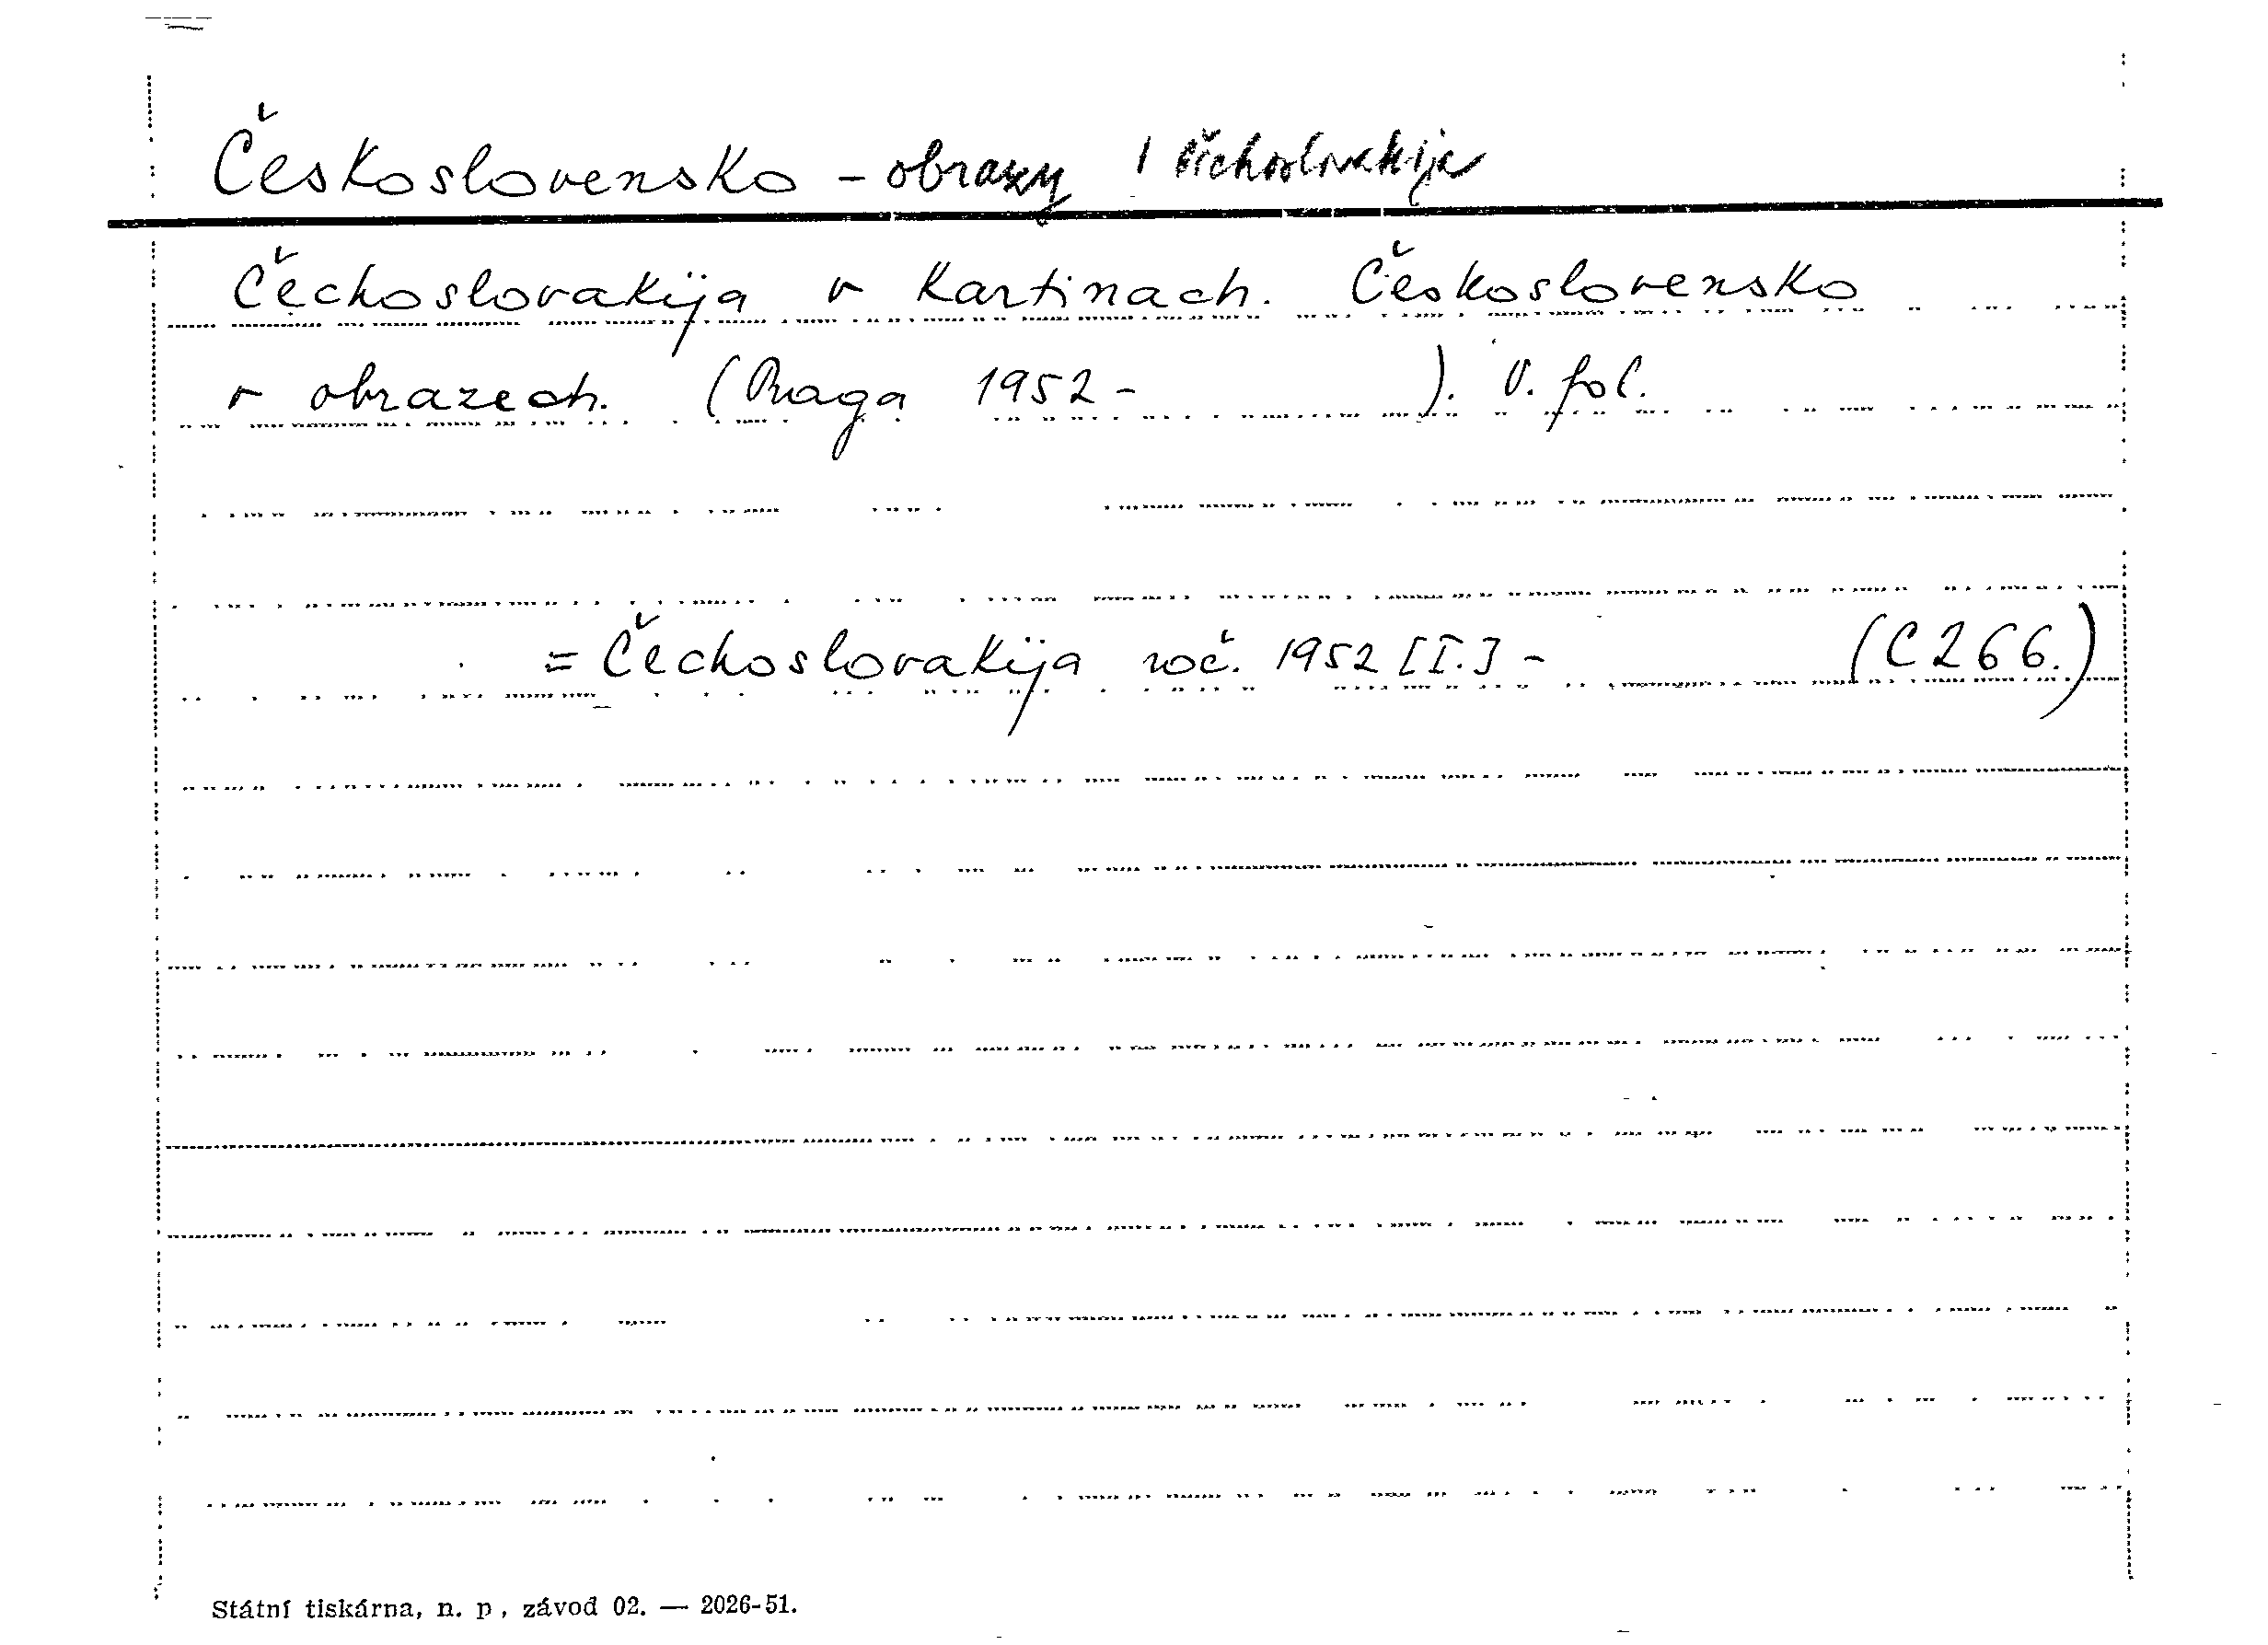 Československo - obrazy / Čechoslovakija
Čechoslovakija v Kartinach. Československo
v obrazech. (Praga 1952 - ). V. fol.
= Čechoslovakija roč. 1952 [I.] - (C 266.)
Státní tiskárna, n. p., závod 02. — 2026-51.